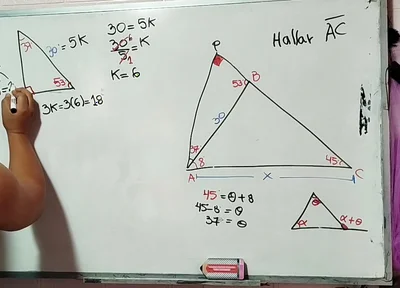 30 = 5K
30/5 = K
K = 6
37
30
= 5K
53
3K = 3(6) = 18
Hallar AC
P
53
B
30
37
8
45
A
x
C
45 = θ + 8
45 - 8 = θ
37 = θ
θ
α
α+θ